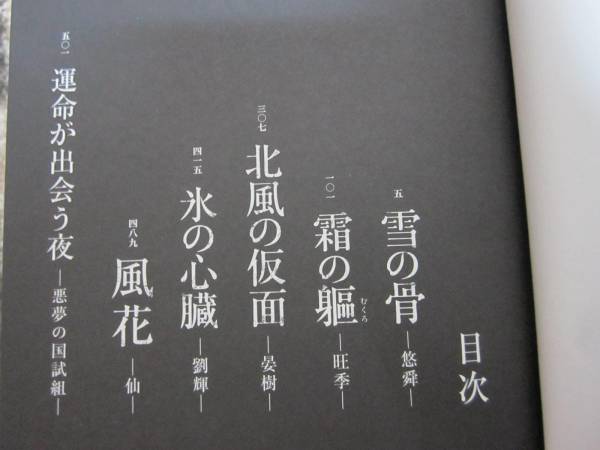 目次
五
雪の骨
―悠舜―
一〇一
霜の軀
むくろ
―旺季―
三〇七
北風の仮面
―晏樹―
四一五
氷の心臓
―劉輝―
四八九
風花
―仙―
五〇一
運命が出会う夜
―悪夢の国試組―